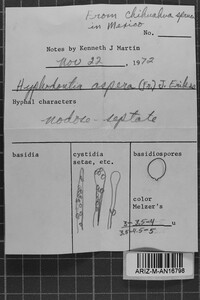 From chihuahua spruce
in Mexico
No.
Notes by Kenneth J Martin
Nov 22, 1972
Hyphodontia aspera (Fr.) J. Erikss
Hyphal characters
nodose-septate
basidia
cystidia
setae, etc.
basidiospores
color
Melzer's
3-3.5-4 u
3.5-4.5-5
ARIZ-M-AN16798